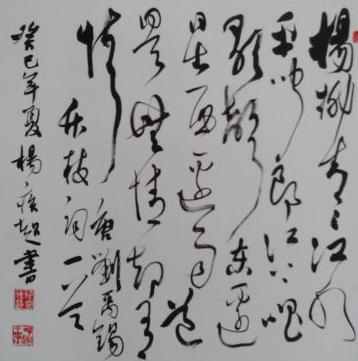 楊柳青〻江水
平聞郎江上唱
歌聲東邊
日出西邊雨道
是無情卻有
情
唐劉禹錫
竹枝詞一首
癸巳年夏楊超書